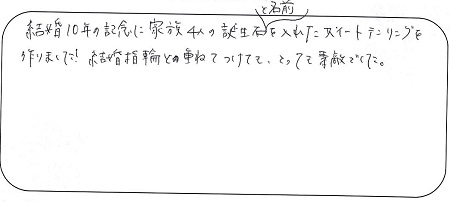 結婚10年の記念に家族4人の誕生石と名前を入れたスイートテンリングを
作りました! 結婚指輪との重ねてつけてて、とっても素敵でした。